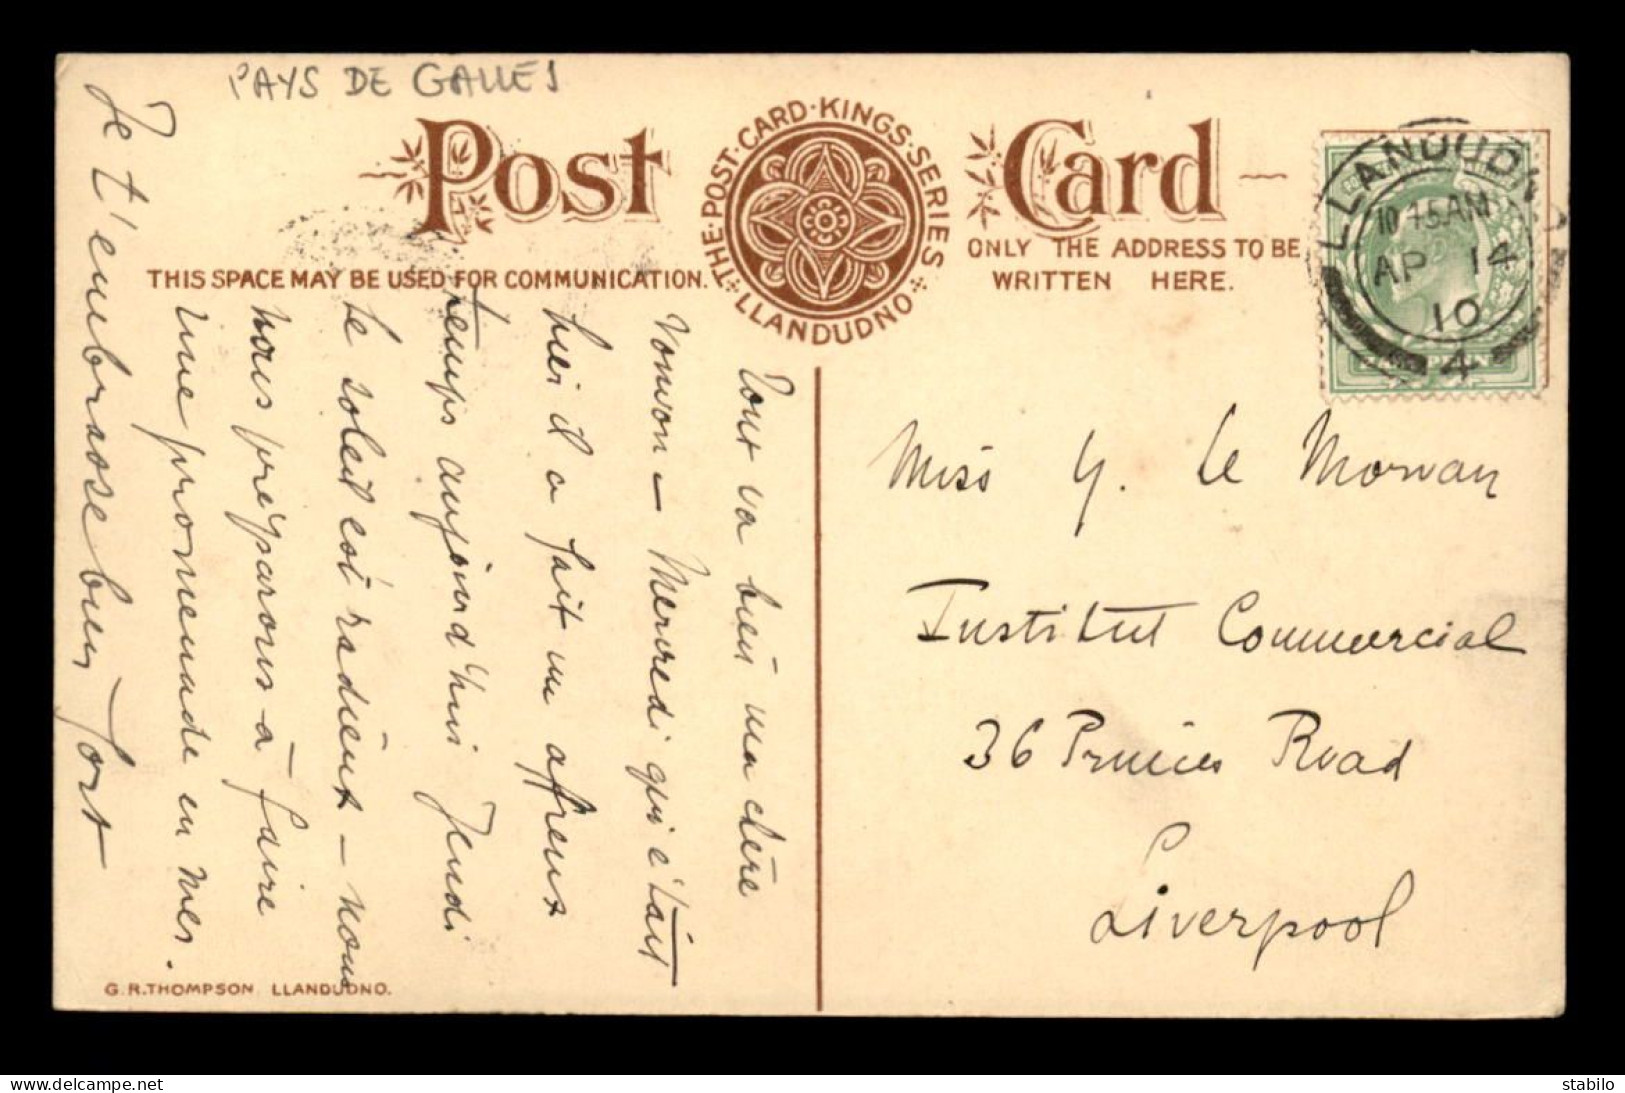 PAYS DE GALLES
Post Card
THE·POST·CARD·KINGS·SERIES
LLANDUDNO
THIS SPACE MAY BE USED FOR COMMUNICATION.
ONLY THE ADDRESS TO BE
WRITTEN HERE.
LLANDUDNO
10 15AM
AP 14
10
4
Tout va bien ma chère
Vonvon – Mercredi qui était
hier il a fait un affreux
temps aujourd'hui Jeudi
le soleil est radieux – nous
nous préparons à faire
une promenade en mer.
Je t'embrasse bien fort
Miss Y. Le Morvan
Institut Commercial
36 Princes Road
Liverpool
G.R.THOMPSON. LLANDUDNO.
website: delcampe.net
stabilo